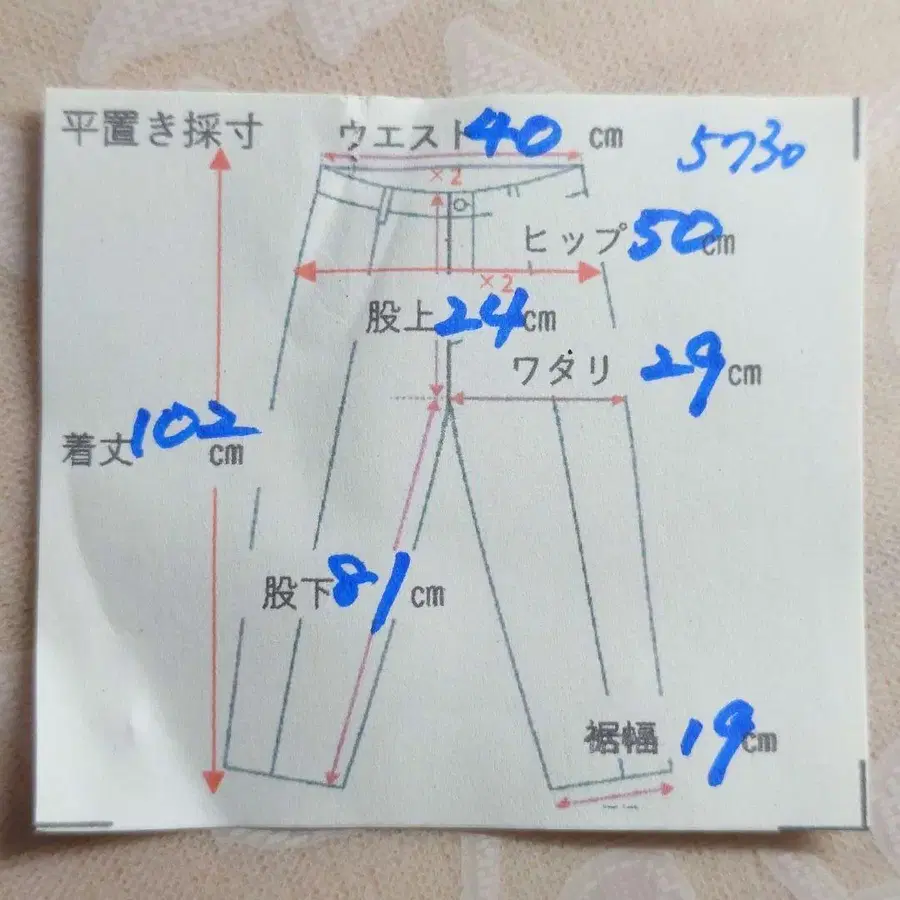 平置き採寸
ウエスト40 cm
5730
×2
ヒップ50cm
×2
股上24cm
ワタリ 29cm
着丈102cm
股下81cm
裾幅 19cm